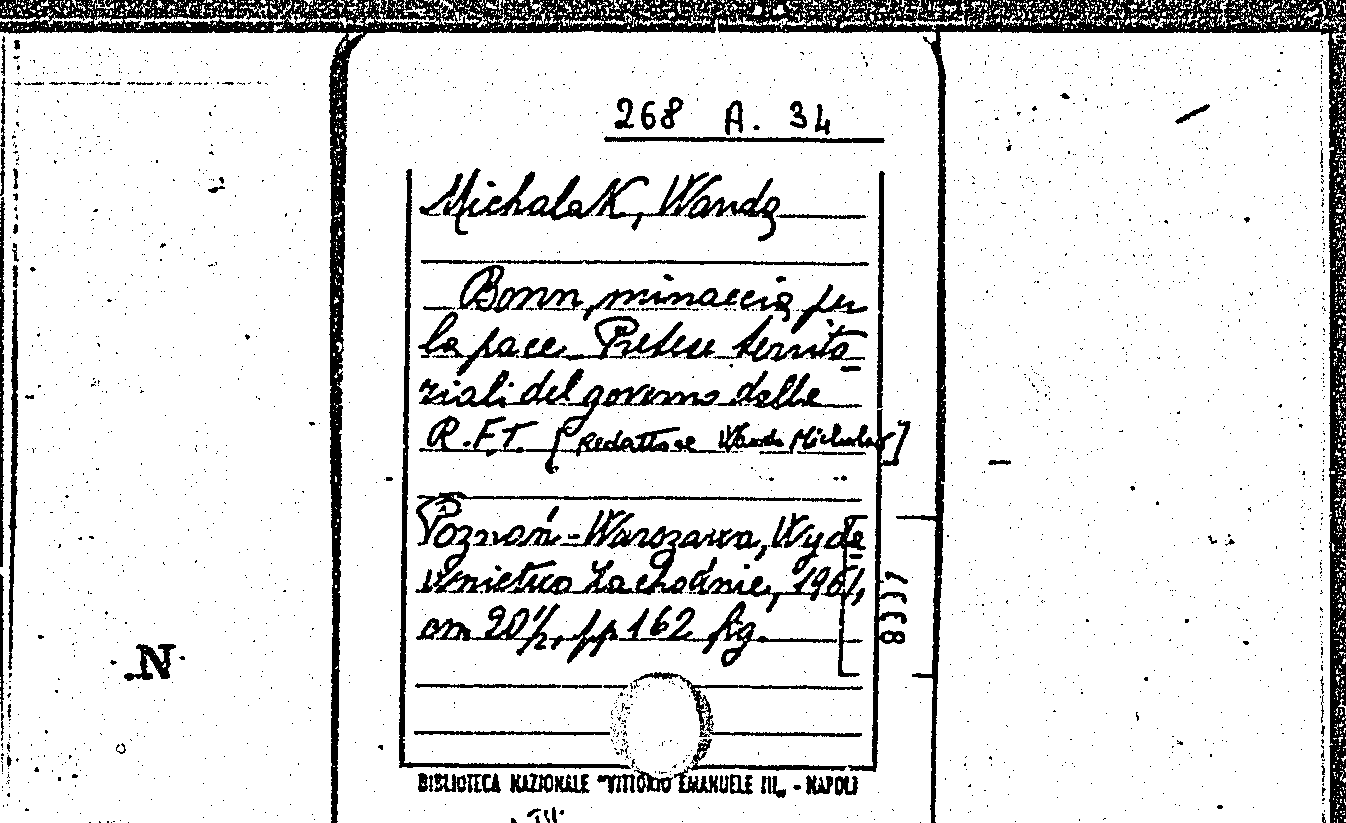 268 A. 34
Michalak, Wanda
Bonn, minaccia per
la pace. Pretese territo
riali del governo delle
R.F.T. [Redattore Wanda Michalak]
Poznań-Warszawa, Wyda
wnictwo Zachodnie, 1961,
cm 20½, pp 162 fig.
8337
BIBLIOTECA NAZIONALE "VITTORIO EMANUELE III„ - NAPOLI
N